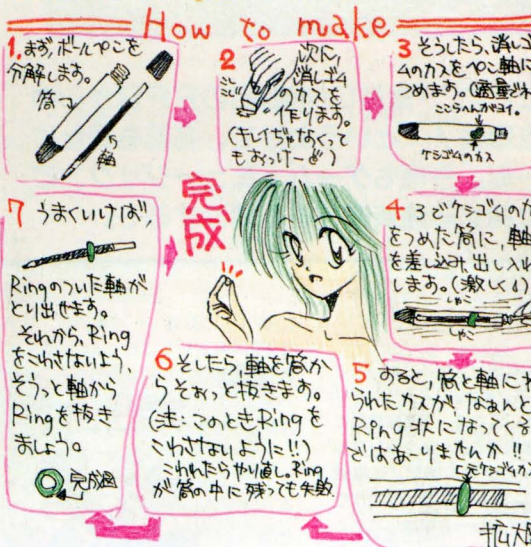 How to make
1. まず、ボールペンを
分解します。
筒
軸
2
次に、
消しゴム
のカスを
作ります。
(キレイぢゃなくって
もおっけーど)
ゴシ
ゴシ
3 そうしたら、消しゴ
ムのカスをペン軸に
つめます。(適量どれ
ここらへんがヨイ。
ケシゴムのカス
4 3でケシゴムのカ
をつめた筒に、軸
を差し込み、出し入れ
します。(激しく!)
しゃこ
しゃこ
5 すると、筒と軸に
られたカスが、なぁんと
Ring状になってくる
ではあーりませんか!!
元ケシゴムカス
拡大
6 そしたら、軸を筒か
らそぉっと抜きます。
(注:このときRingを
こわさないように!!)
こわれたらやり直し。Ring
が筒の中に残っても失敗
7 うまくいけば、
Ringのついた軸が
とり出せます。
それから、Ring
をこわさないよう、
そうっと軸から
Ringを抜き
ましょう。
完成図
完成